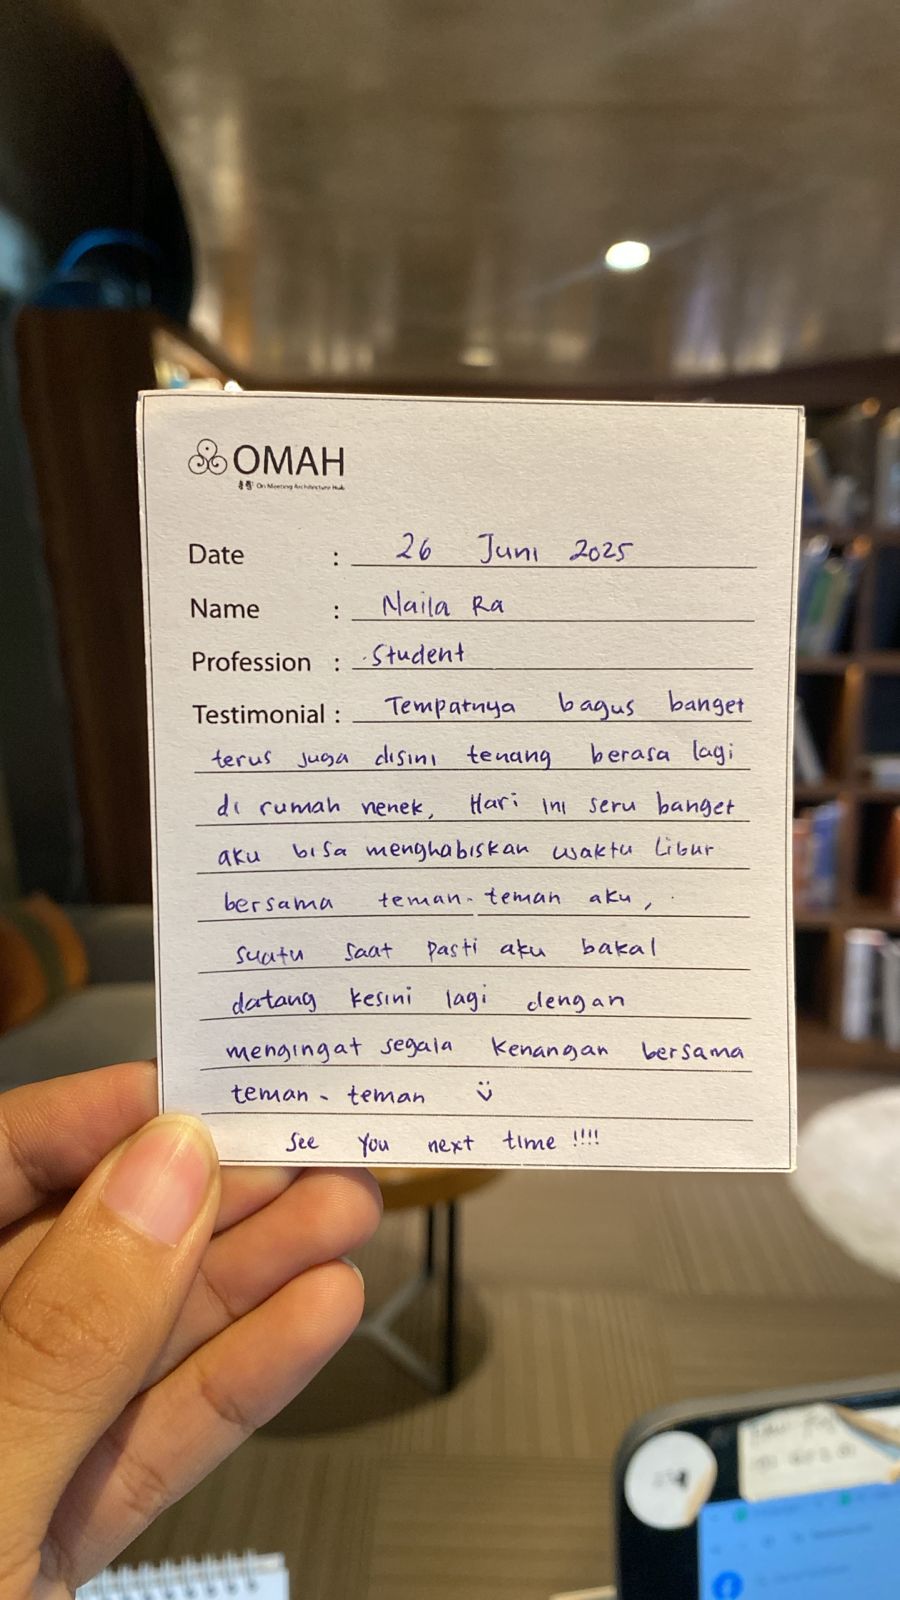 OMAH
On Meeting Architecture Hub
Date : 26 Juni 2025
Name : Naila Ra
Profession : Student
Testimonial : Tempatnya bagus banget
terus juga disini tenang berasa lagi
di rumah nenek, Hari ini seru banget
aku bisa menghabiskan waktu libur
bersama teman-teman aku,
suatu saat pasti aku bakal
datang kesini lagi dengan
mengingat segala kenangan bersama
teman-teman
See you next time !!!!